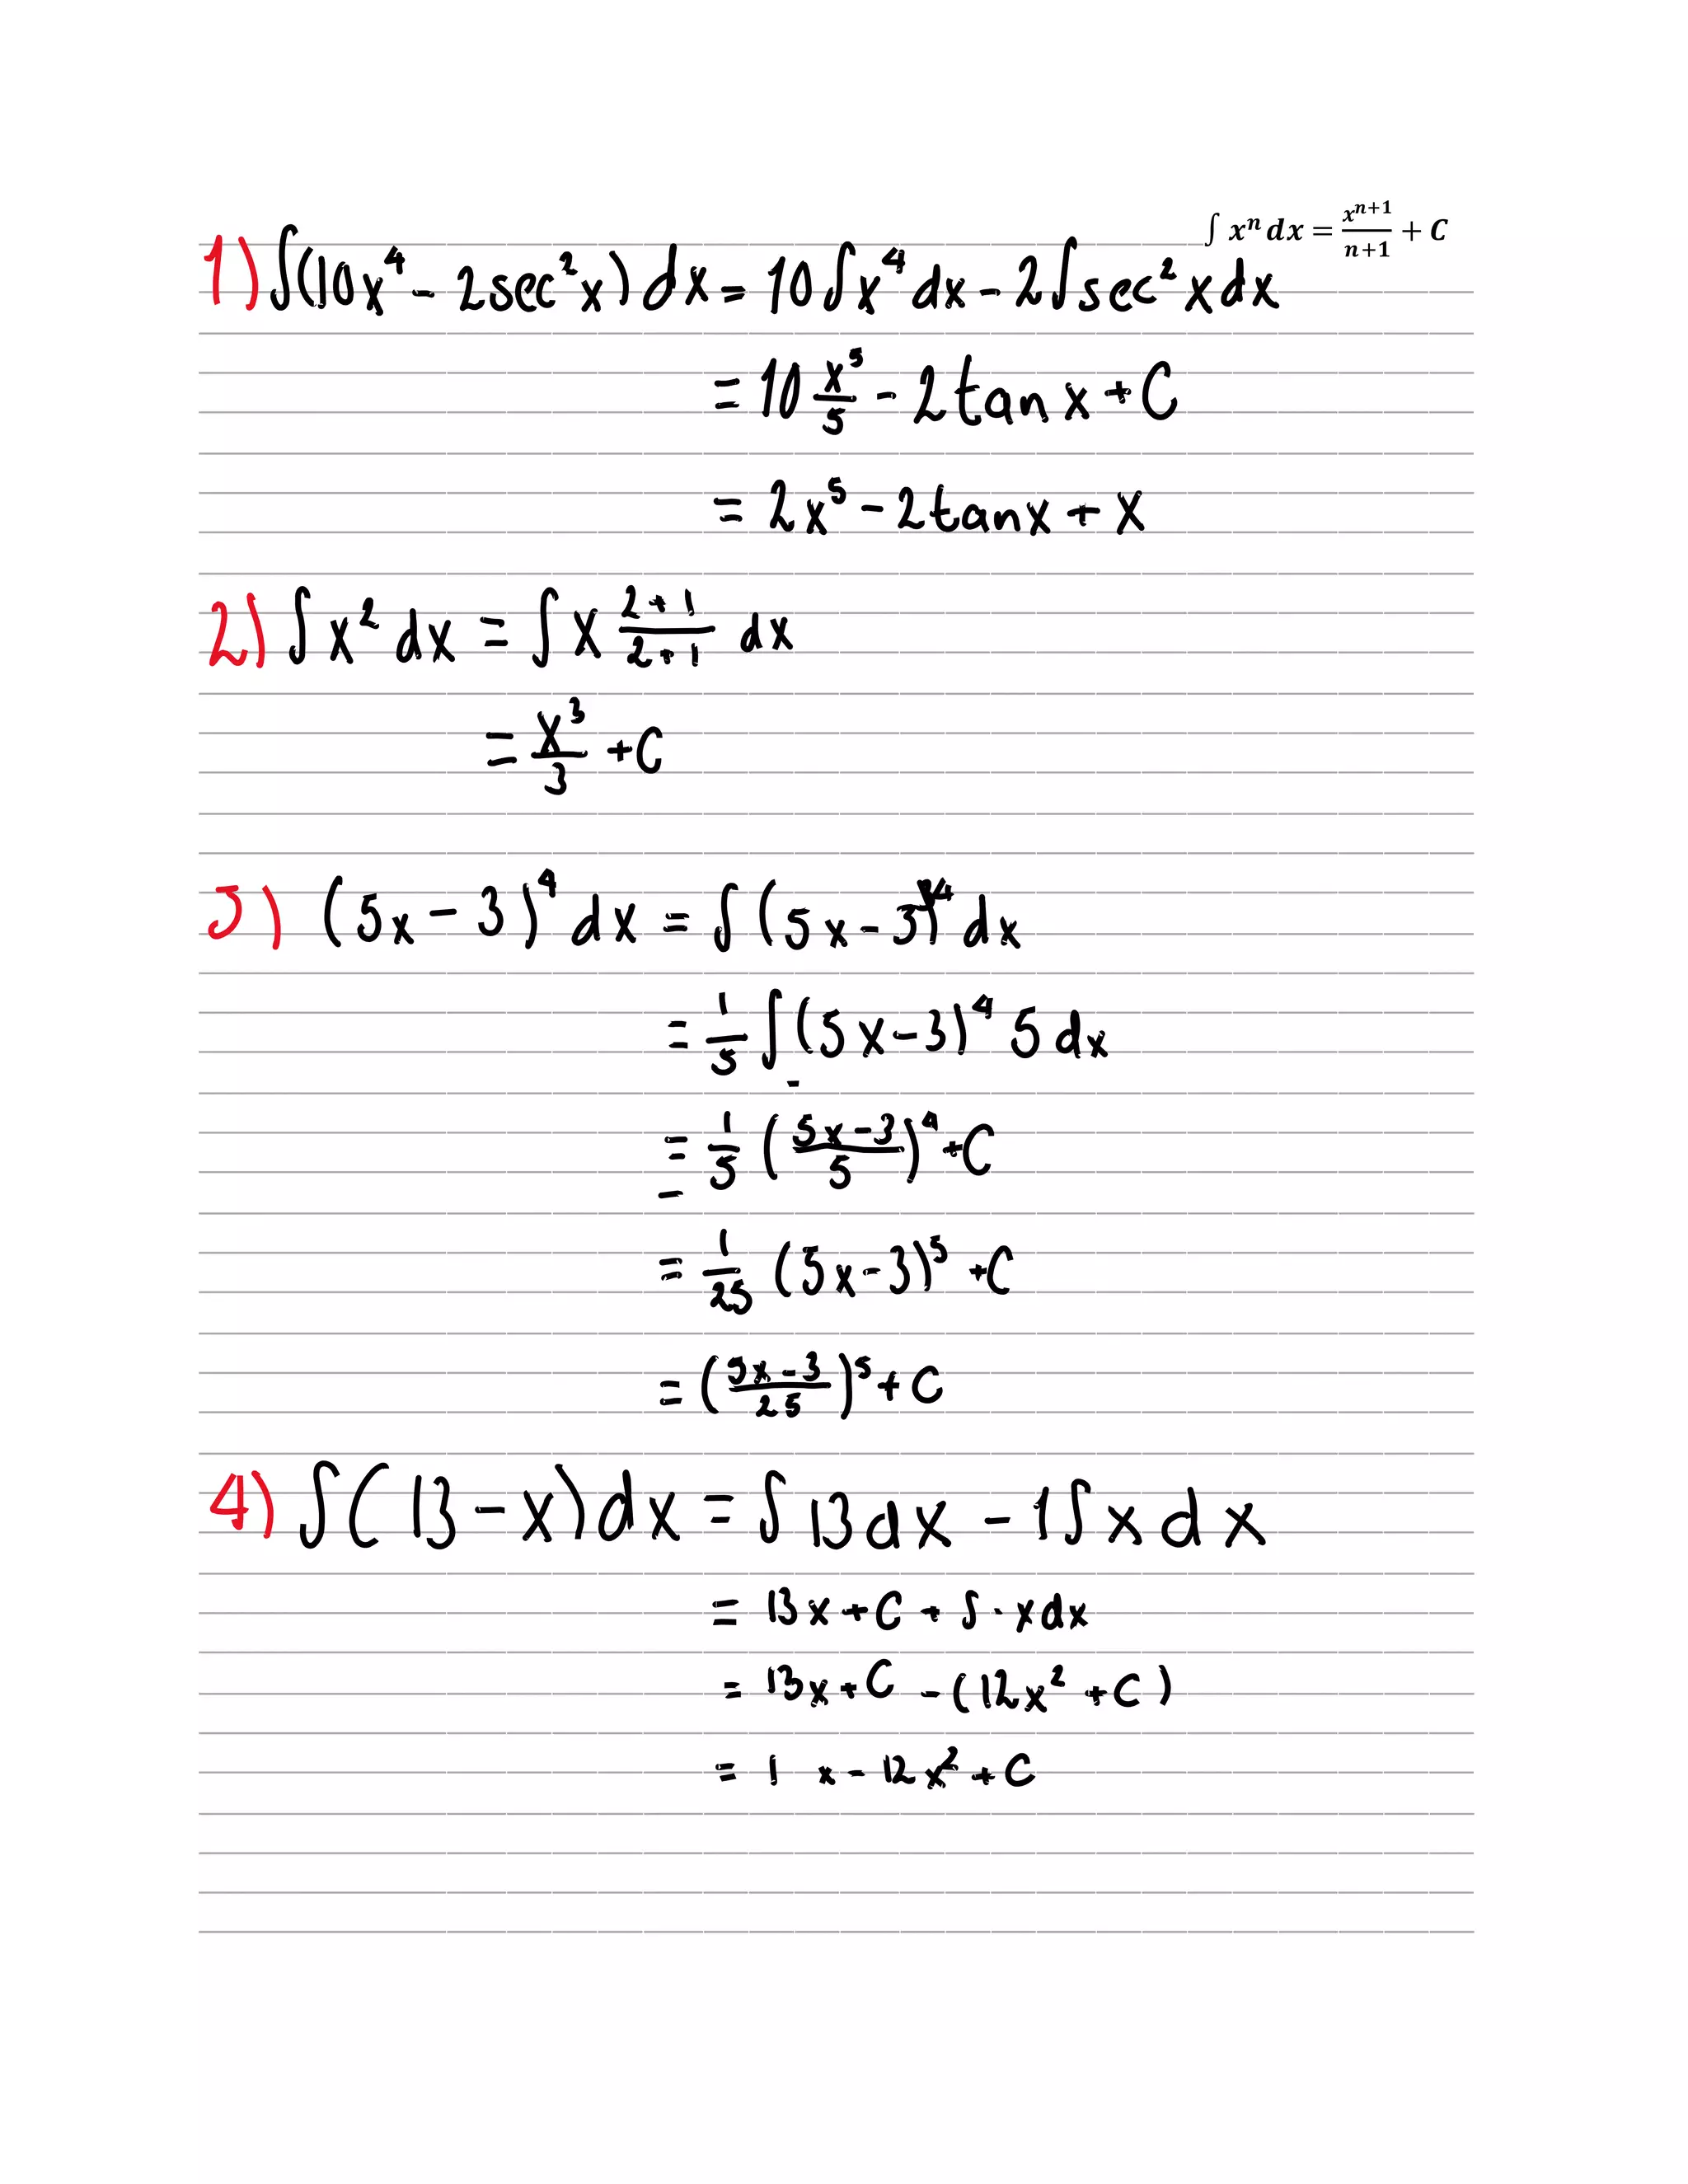 ∫ xⁿ dx = xⁿ⁺¹/n+1 + C
1) ∫(10x⁴ - 2sec²x) dx = 10∫x⁴ dx - 2∫sec²x dx
= 10 x⁵/5 - 2tan x + C
= 2x⁵ - 2tanx + x
2) ∫x² dx = ∫x 2+1/2+1 dx
= x³/3 + C
3) (5x - 3)⁴ dx = ∫(5x - 3)⁴ dx
= 1/5 ∫(5x - 3)⁴ 5 dx
= 1/5 (5x - 3/5)⁴ + C
= 1/25 (5x - 3)⁵ + C
= (5x - 3/25)⁵ + C
4) ∫(13 - x)dx = ∫13dx - 1∫x dx
= 13x + C + ∫ - xdx
= 13x + C - (12x² + C)
= 1 x - 12x² + C